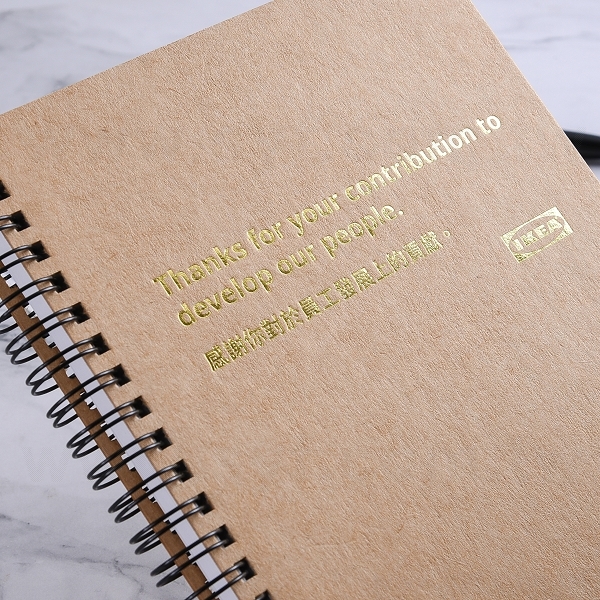 Thanks for your contribution to
develop our people.
感謝你對於員工發展上的貢獻。
IKEA